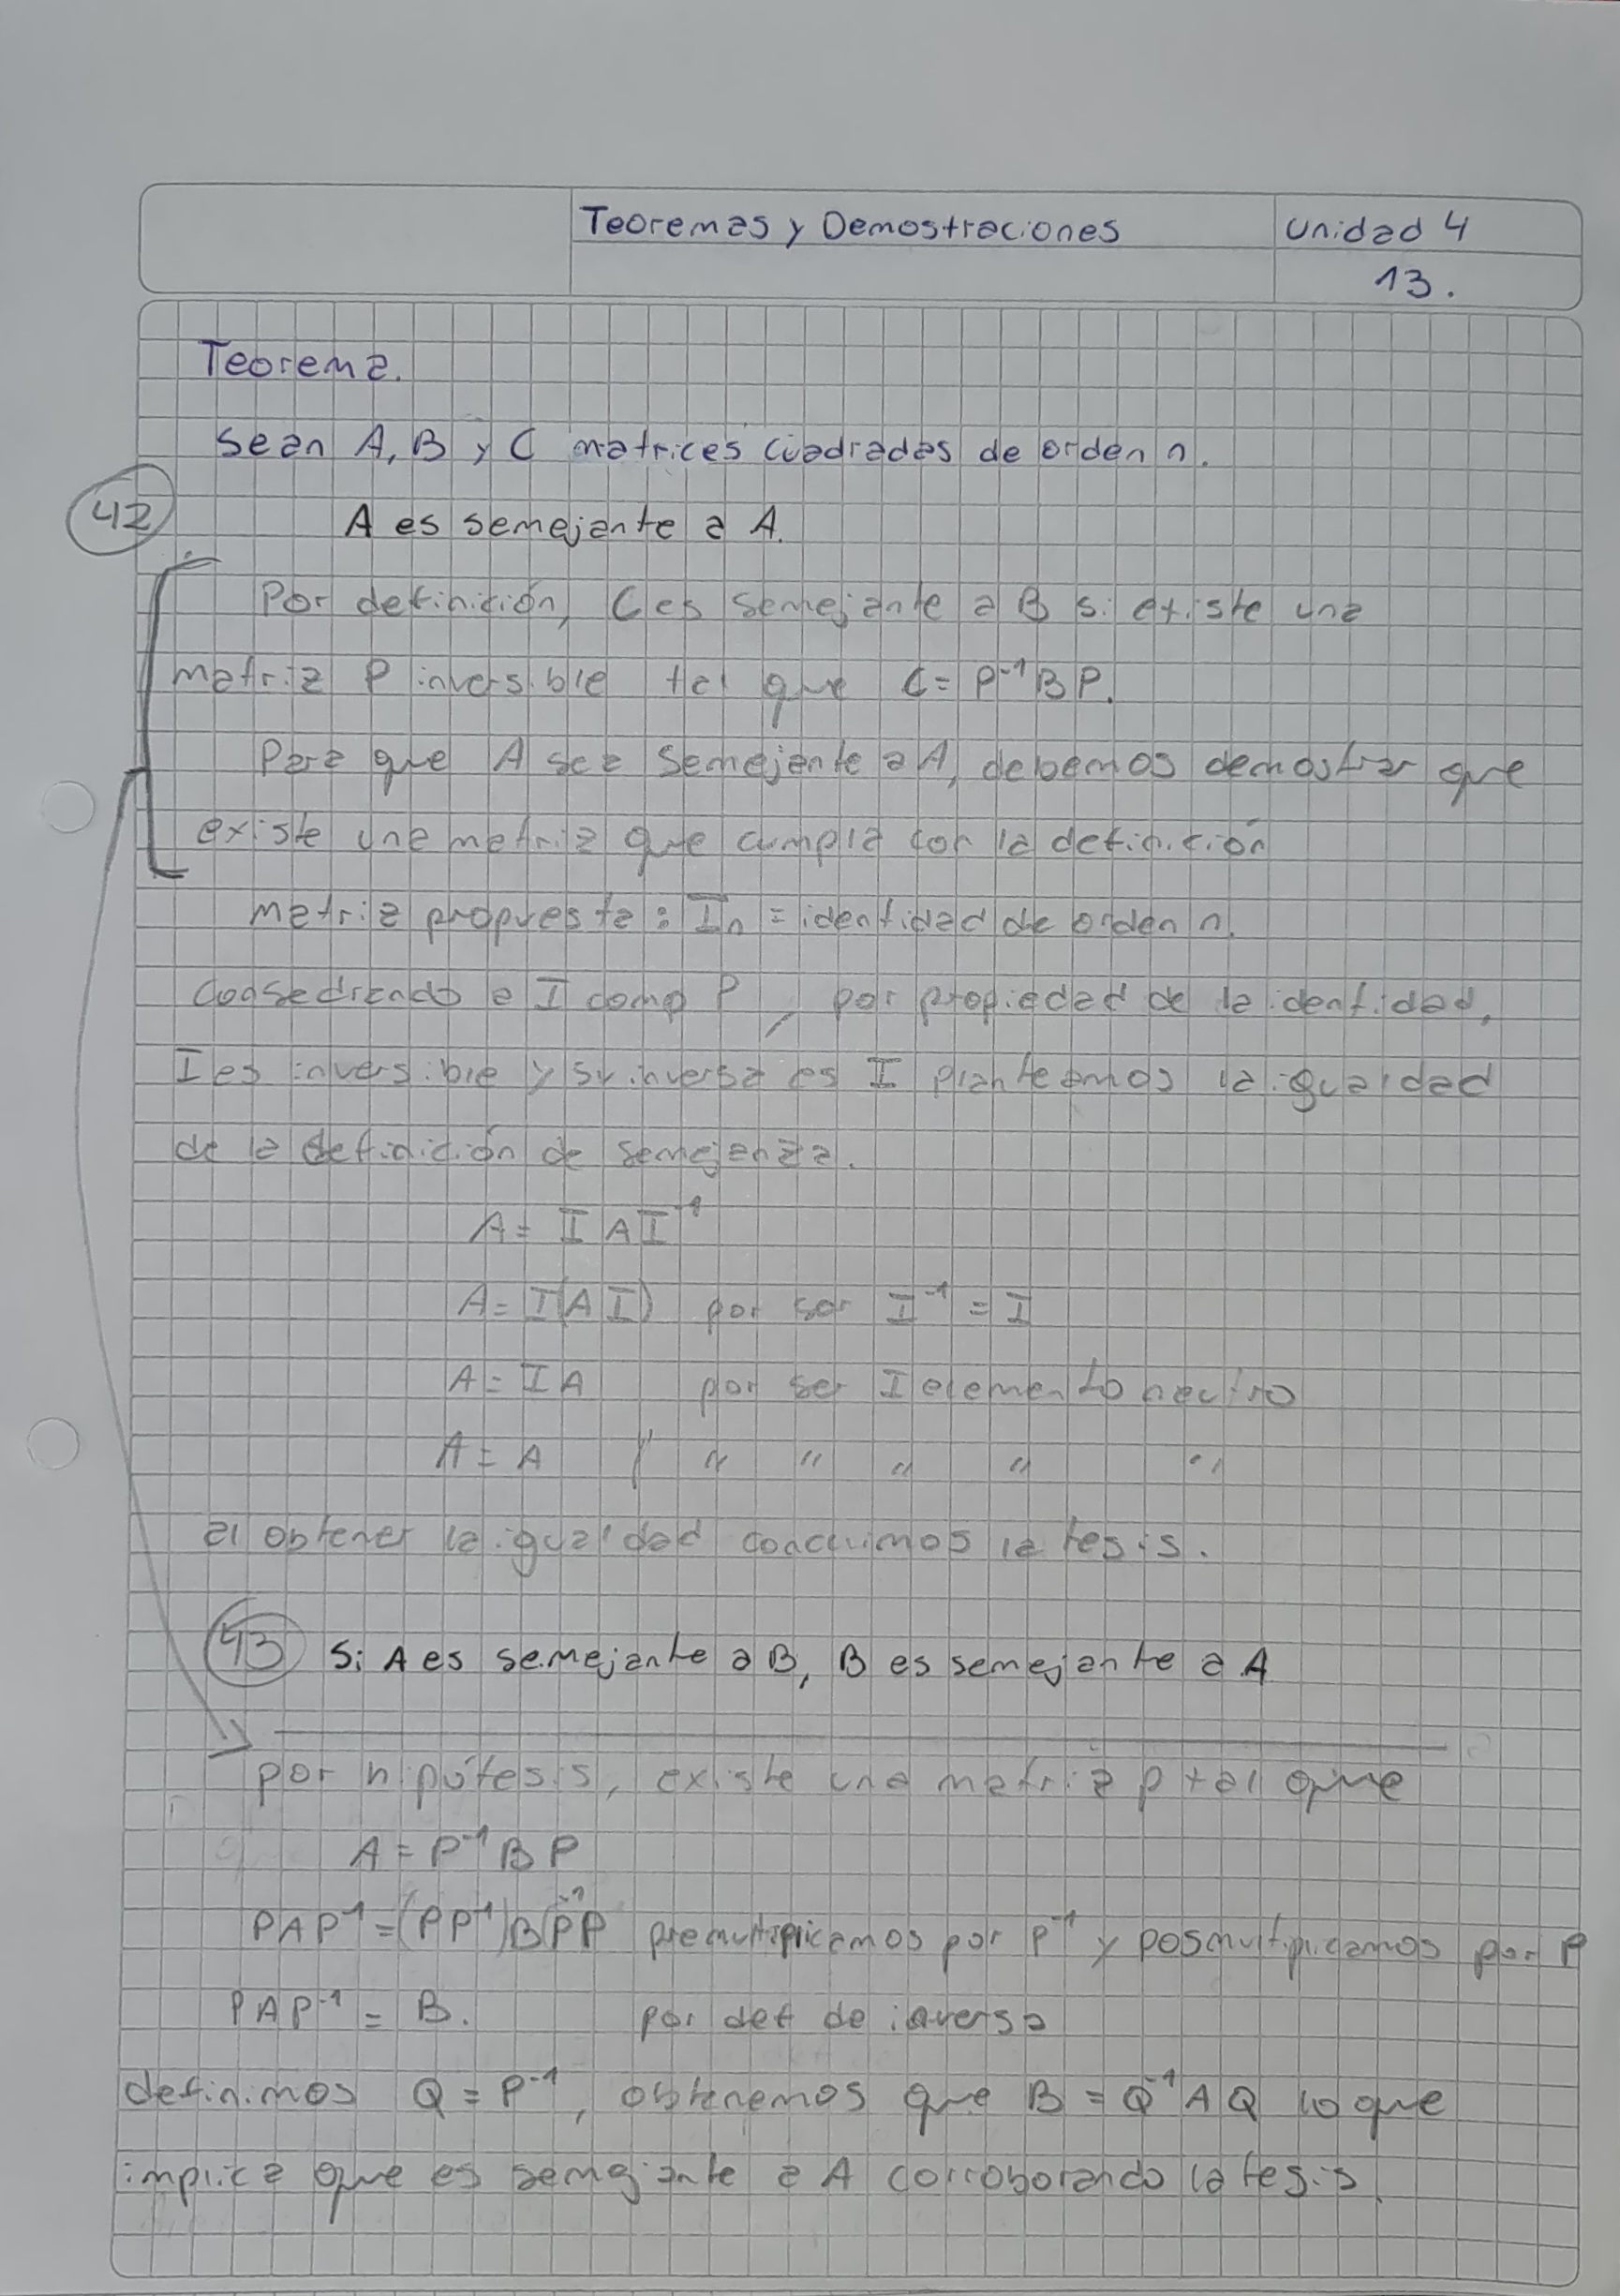 Teoremas y Demostraciones
Unidad 4
13.
Teorema.
Sean A, B y C matrices cuadradas de orden n.
42
A es semejante a A.
Por definición, C es semejante a B si existe una
matriz P inversible tal que C = P⁻¹BP.
Para que A sea semejante a A, debemos demostrar que
existe una matriz que cumpla con la definición
matriz propuesta: In = identidad de orden n.
Consedrando a I como P, por propiedad de la identidad,
I es inversible y su inversa es I planteamos la igualdad
de la definición de semejanza.
A = I A I⁻¹
A = I(A I) por ser I⁻¹ = I
A = I A por ser I elemento neutro
A = A " " " " "
al obtener la igualdad concluimos la tesis.
43 Si A es semejante a B, B es semejante a A
por hipótesis, existe una matriz p tal que
A = P⁻¹ B P
PAP⁻¹ = (PP⁻¹)B(P⁻¹P premultiplicamos por P⁻¹ y posmultiplicamos por P
PAP⁻¹ = B. por def de inversa
definimos Q = P⁻¹, obtenemos que B = Q⁻¹AQ lo que
implica que es semejante a A corroborando la tesis.